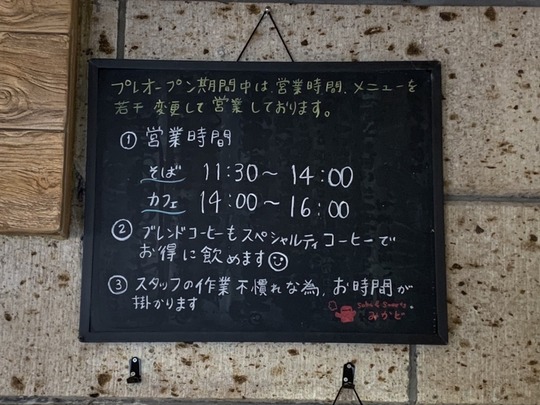 プレオープン期間中は、営業時間、メニューを
若干 変更して 営業しております。
① 営業時間
そば 11:30〜14:00
カフェ 14:00〜16:00
② ブレンドコーヒーもスペシャルティコーヒーで
お得に飲めます
③ スタッフの作業不慣れな為、お時間が
掛かります
Soba & Sweets
みかど